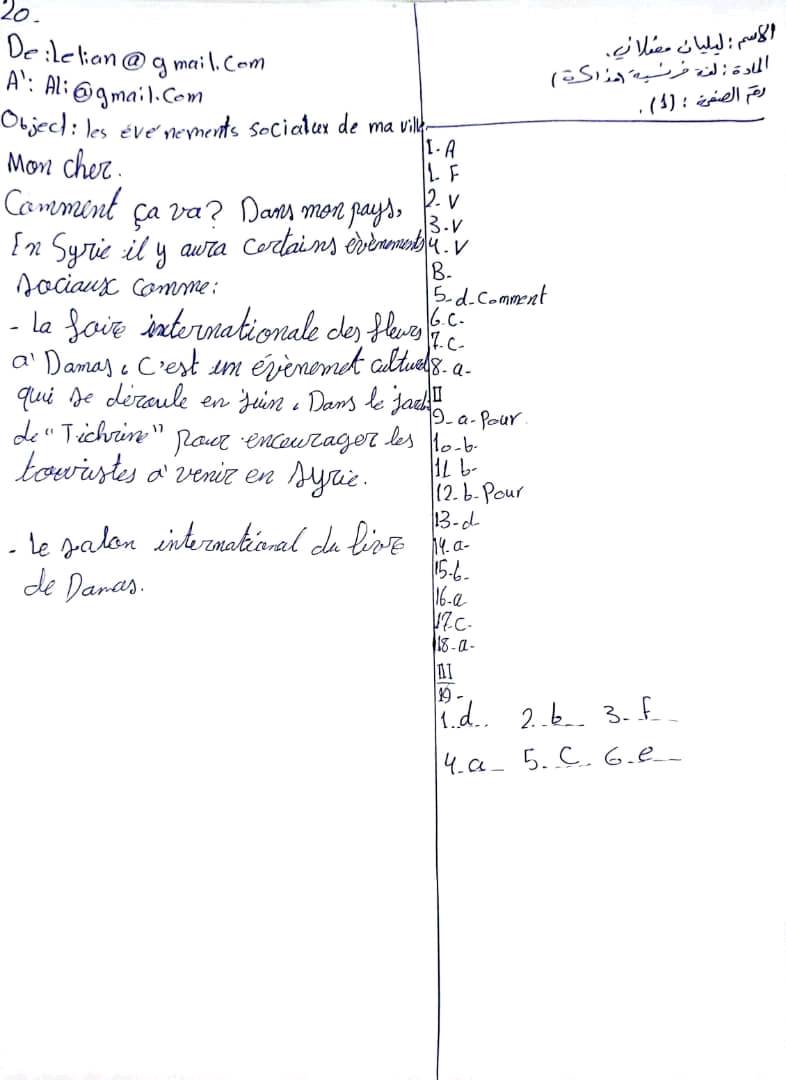 الاسم : ليليان مضلاني.
المادة : لغة فرنسية (مذاكرة)
رقم الصفحة : (1).
I. A
1. F
2. V
3. V
4. V
B-
5-d-Comment
6. c-
7. c-
8-a-
II
9-a-Pour
10-b-
11. b-
12-b-Pour
13-d
14. a-
15-b-
16-a
17. c-
18-a-
III
19-
1. d.. 2. b- 3- f-
4-a- 5. C. 6-e-
20-
De : ilelian@gmail.Com
A' : Ali@gmail.Com
Object : les événements sociaux de ma ville
Mon cher.
Comment ça va ? Dans mon pays,
En Syrie il y aura certains évènements
sociaux comme :
- La foire internationale des fleurs
a' Damas, C'est un évènemet culturel
qui se déroule en juin. Dans le
de "Tichrine" pour encourager les
touristes a' venir en Syrie.
- Le salon international du livre
de Damas.